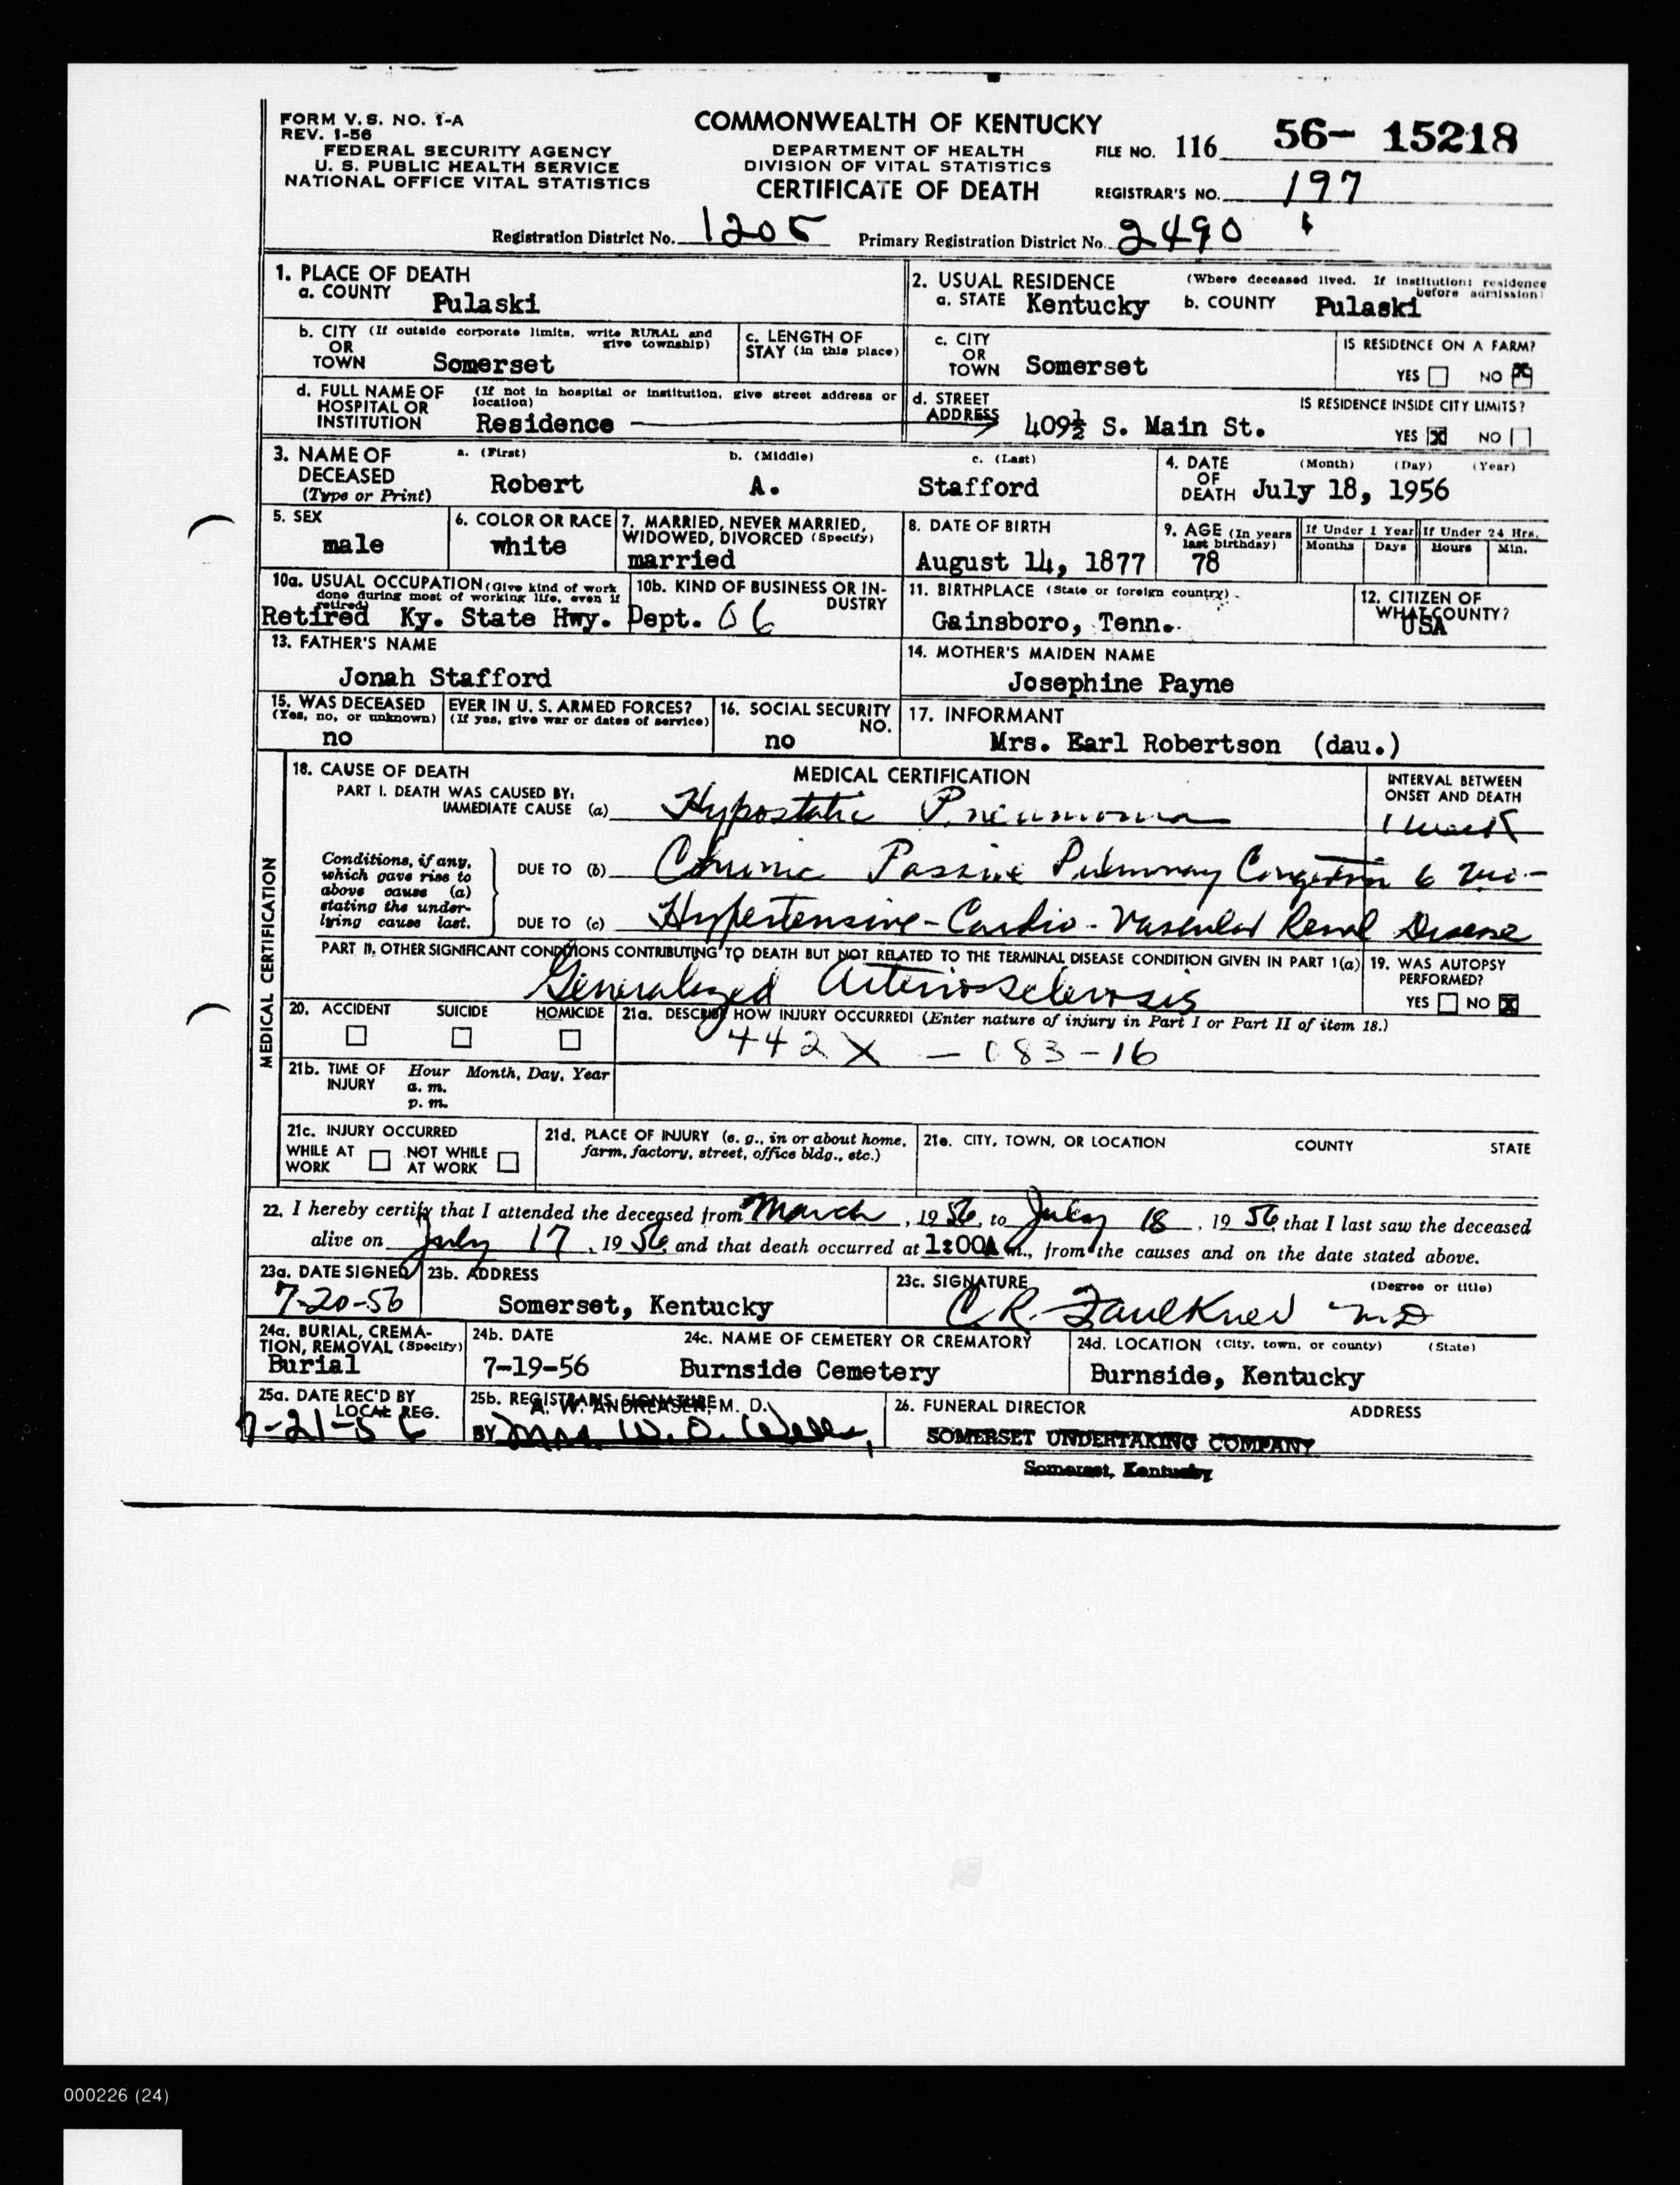 FORM V. S. NO. 1-A
REV. 1-56
FEDERAL SECURITY AGENCY
U. S. PUBLIC HEALTH SERVICE
NATIONAL OFFICE VITAL STATISTICS
COMMONWEALTH OF KENTUCKY
DEPARTMENT OF HEALTH
DIVISION OF VITAL STATISTICS
CERTIFICATE OF DEATH
FILE NO. 116 56- 15218
REGISTRAR'S NO. 197
Registration District No. 1205 Primary Registration District No. 2490
1. PLACE OF DEATH
a. COUNTY Pulaski
2. USUAL RESIDENCE (Where deceased lived. If institution: residence before admission)
a. STATE Kentucky b. COUNTY Pulaski
b. CITY (If outside corporate limits, write RURAL and give township)
OR
TOWN Somerset
c. LENGTH OF
STAY (in this place)
c. CITY
OR
TOWN Somerset
IS RESIDENCE ON A FARM?
YES NO X
d. FULL NAME OF (If not in hospital or institution, give street address or location)
HOSPITAL OR
INSTITUTION Residence
d. STREET
ADDRESS 409½ S. Main St.
IS RESIDENCE INSIDE CITY LIMITS?
YES X NO
3. NAME OF
DECEASED
(Type or Print)
a. (First) b. (Middle) c. (Last)
Robert A. Stafford
4. DATE
OF
DEATH
(Month) (Day) (Year)
July 18, 1956
5. SEX
male
6. COLOR OR RACE
white
7. MARRIED, NEVER MARRIED,
WIDOWED, DIVORCED (Specify)
married
8. DATE OF BIRTH
August 14, 1877
9. AGE (In years
last birthday)
78
If Under 1 Year If Under 24 Hrs.
Months Days Hours Min.
10a. USUAL OCCUPATION (Give kind of work
done during most of working life, even if
retired)
10b. KIND OF BUSINESS OR IN-
DUSTRY
Retired Ky. State Hwy. Dept. 06
11. BIRTHPLACE (State or foreign country)
Gainsboro, Tenn.
12. CITIZEN OF
WHAT COUNTY?
USA
13. FATHER'S NAME
Jonah Stafford
14. MOTHER'S MAIDEN NAME
Josephine Payne
15. WAS DECEASED EVER IN U. S. ARMED FORCES?
(Yes, no, or unknown) (If yes, give war or dates of service)
no
16. SOCIAL SECURITY
NO.
no
17. INFORMANT
Mrs. Earl Robertson (dau.)
MEDICAL CERTIFICATION
18. CAUSE OF DEATH MEDICAL CERTIFICATION
INTERVAL BETWEEN
ONSET AND DEATH
PART I. DEATH WAS CAUSED BY:
IMMEDIATE CAUSE (a) Hypostatic Pneumonia 1 week
Conditions, if any,
which gave rise to
above cause (a)
stating the under-
lying cause last.
DUE TO (b) Chronic Passive Pulmonary Congestion 6
DUE TO (c) Hypertensive-Cardio-Vascular Renal Disease
PART II. OTHER SIGNIFICANT CONDITIONS CONTRIBUTING TO DEATH BUT NOT RELATED TO THE TERMINAL DISEASE CONDITION GIVEN IN PART 1(a)
Generalized Arteriosclerosis
19. WAS AUTOPSY
PERFORMED?
YES NO X
20. ACCIDENT SUICIDE HOMICIDE
21a. DESCRIBE HOW INJURY OCCURRED! (Enter nature of injury in Part I or Part II of item 18.)
442X - 083-16
21b. TIME OF
INJURY
Hour Month, Day, Year
a. m.
p. m.
21c. INJURY OCCURRED
WHILE AT
WORK
NOT WHILE
AT WORK
21d. PLACE OF INJURY (e. g., in or about home,
farm, factory, street, office bldg., etc.)
21e. CITY, TOWN, OR LOCATION COUNTY STATE
22. I hereby certify that I attended the deceased from March, 1956, to July 18, 1956, that I last saw the deceased
alive on July 17, 1956, and that death occurred at 1:00A m., from the causes and on the date stated above.
23a. DATE SIGNED
7-20-56
23b. ADDRESS
Somerset, Kentucky
23c. SIGNATURE (Degree or title)
C R. Faulkner M.D
24a. BURIAL, CREMA-
TION, REMOVAL (Specify)
Burial
24b. DATE
7-19-56
24c. NAME OF CEMETERY OR CREMATORY
Burnside Cemetery
24d. LOCATION (City, town, or county) (State)
Burnside, Kentucky
25a. DATE REC'D BY
LOCAL REG.
7-21-56
25b. REGISTRARS SIGNATURE
A. W. ANDREASEN, M. D.
BY Mrs. W. O.
26. FUNERAL DIRECTOR ADDRESS
SOMERSET UNDERTAKING COMPANY
Somerset, Kentucky
000226 (24)